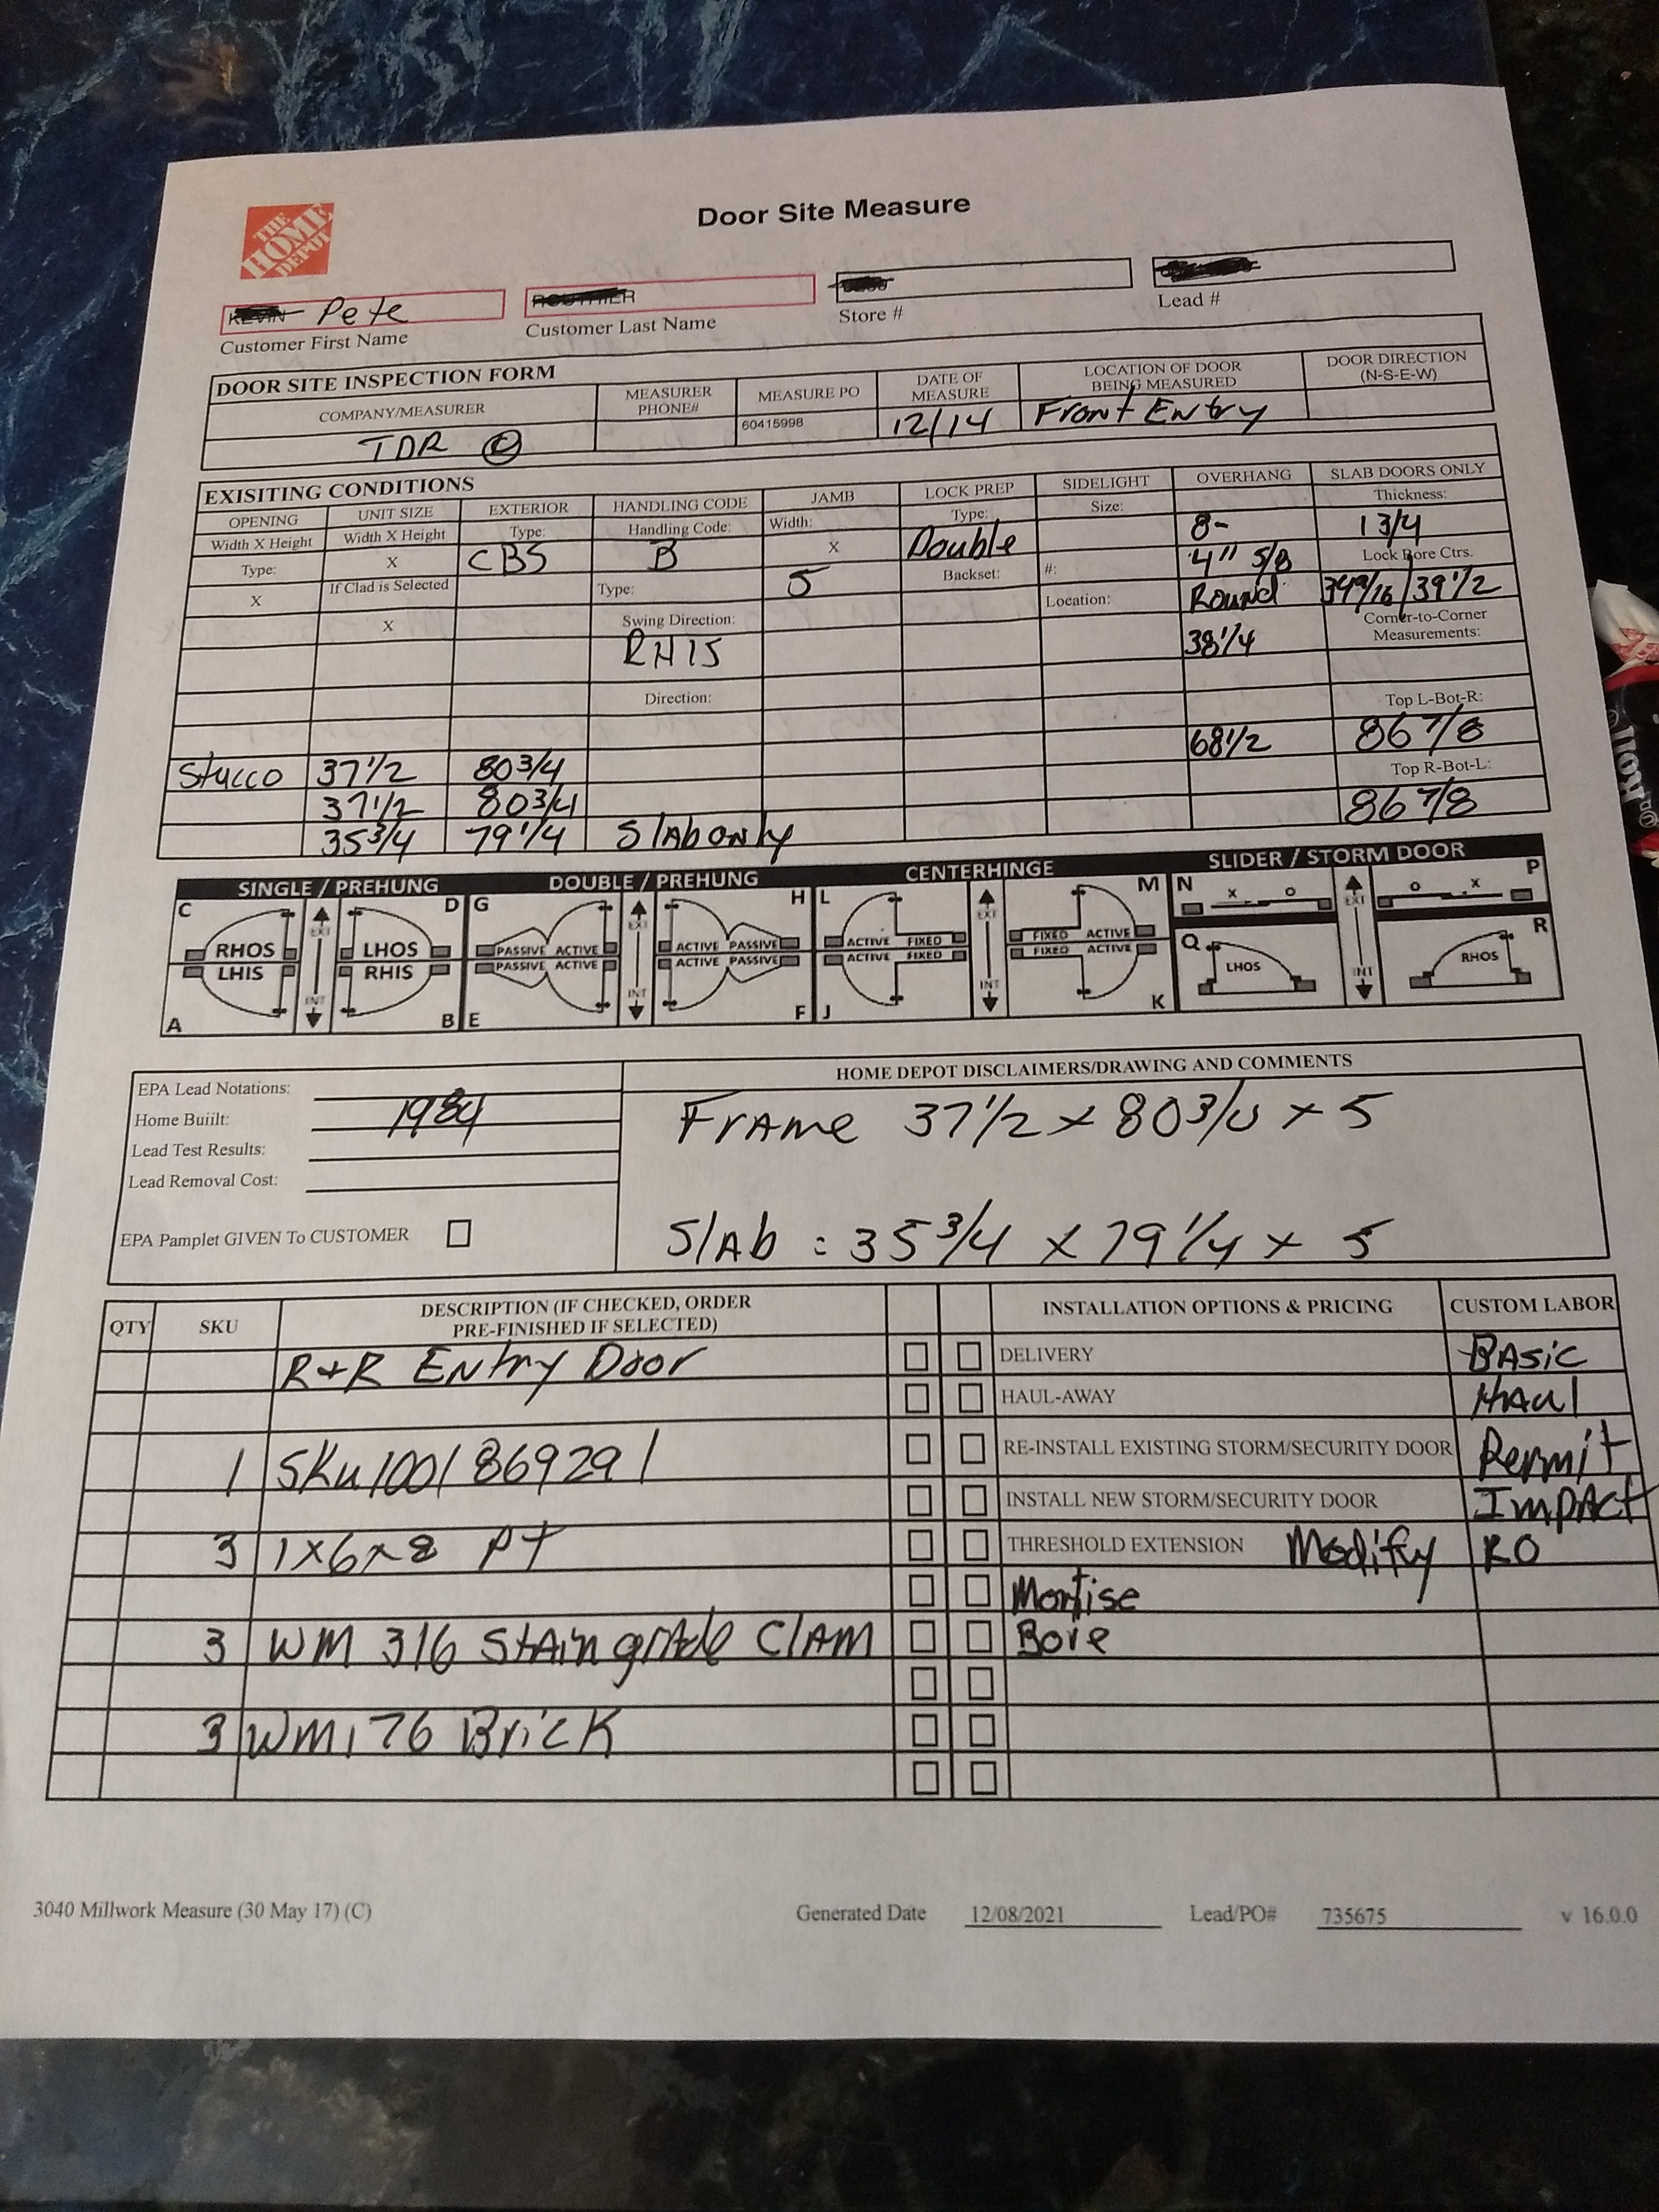 THE HOME DEPOT
Door Site Measure
Pete
Customer First Name
Customer Last Name
Store #
Lead #
DOOR SITE INSPECTION FORM
COMPANY/MEASURER
MEASURER PHONE#
MEASURE PO
DATE OF MEASURE
LOCATION OF DOOR BEING MEASURED
DOOR DIRECTION (N-S-E-W)
TDR
60415998
12/14
Front Entry
EXISITING CONDITIONS
OPENING
UNIT SIZE
EXTERIOR
HANDLING CODE
JAMB
LOCK PREP
SIDELIGHT
OVERHANG
SLAB DOORS ONLY
Width X Height
Width X Height
Type:
Handling Code:
Width:
Type:
Size:
8-
Thickness:
1 3/4
Type:
X
CBS
B
X
Double
4" 5/8
Lock Bore Ctrs.
X
If Clad is Selected
Type:
5
Backset:
#:
Round
34 9/16 / 39 1/2
X
Swing Direction:
Location:
38 1/4
Corner-to-Corner Measurements:
RHIS
Direction:
Top L-Bot-R:
68 1/2
86 7/8
Stucco 37 1/2 80 3/4
Top R-Bot-L:
37 1/2 80 3/4
86 7/8
35 3/4 79 1/4 Slab only
SINGLE / PREHUNG
DOUBLE / PREHUNG
CENTERHINGE
SLIDER / STORM DOOR
C D G H L M N P
RHOS EXT LHOS
LHIS INT RHIS
PASSIVE ACTIVE EXT ACTIVE PASSIVE
PASSIVE ACTIVE INT ACTIVE PASSIVE
ACTIVE FIXED EXT FIXED ACTIVE
ACTIVE FIXED INT FIXED ACTIVE
X O EXT O X
Q LHOS INT RHOS R
A B E F J K
EPA Lead Notations:
Home Buiilt: 1984
Lead Test Results:
Lead Removal Cost:
EPA Pamplet GIVEN To CUSTOMER
HOME DEPOT DISCLAIMERS/DRAWING AND COMMENTS
Frame 37 1/2 x 80 3/4 x 5
Slab : 35 3/4 x 79 1/4 x 5
QTY
SKU
DESCRIPTION (IF CHECKED, ORDER PRE-FINISHED IF SELECTED)
INSTALLATION OPTIONS & PRICING
CUSTOM LABOR
R+R Entry Door
DELIVERY
Basic
HAUL-AWAY
Haul
1 SKu 1001869291
RE-INSTALL EXISTING STORM/SECURITY DOOR
Permit
INSTALL NEW STORM/SECURITY DOOR
Impact
3 1x6x8 PT
THRESHOLD EXTENSION Modify RO
Mortise
3 WM 316 Stain grade Clam
Bore
3 WM 176 Brick
3040 Millwork Measure (30 May 17) (C)
Generated Date 12/08/2021
Lead/PO# 735675
v 16.0.0
Roll